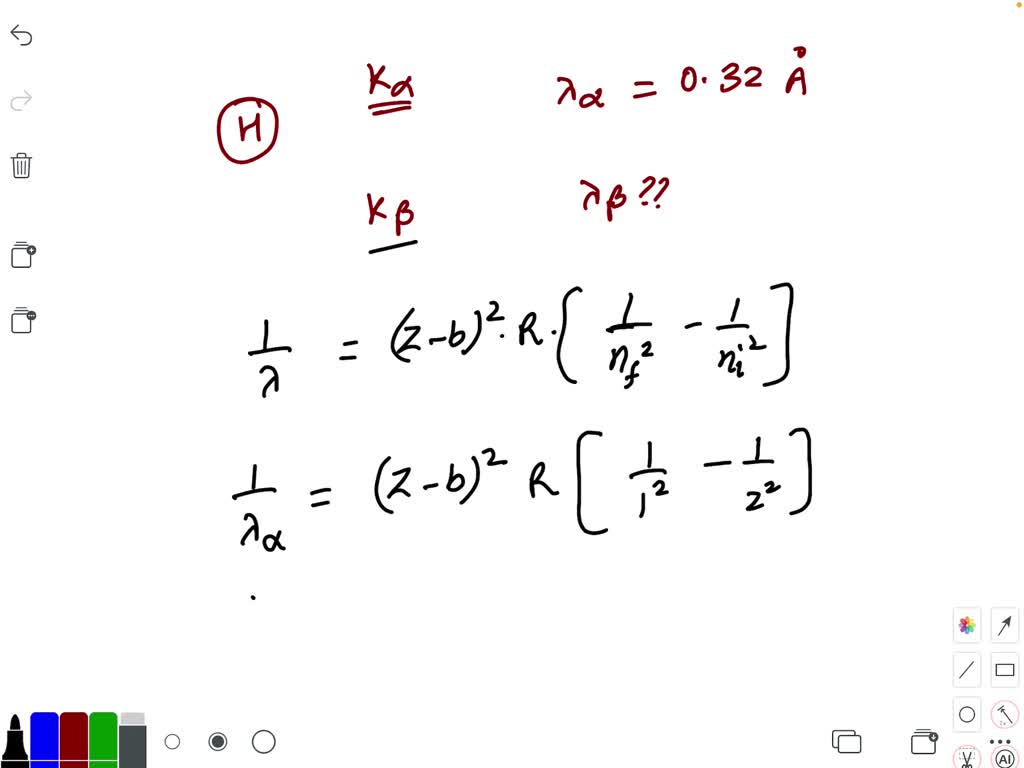 Kα λα = 0.32 Å
H
Kβ λβ ??
1/λ = (Z-b)². R. [1/nf² - 1/ni²]
1/λα = (Z-b)² R [1/1² - 1/2²]
AI